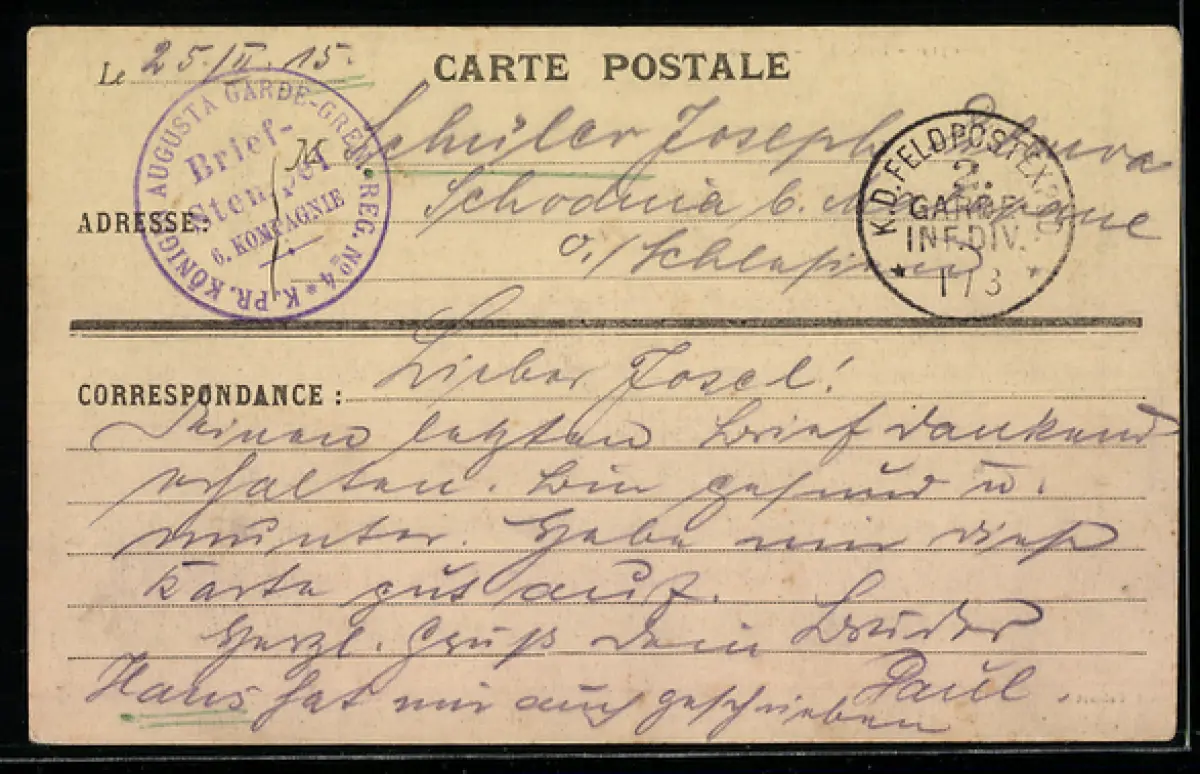 Le 25./II. 15.
CARTE POSTALE
M Schüler Joseph
ADRESSE:
Schodnia b. Malapane
o./Schlesien
K. PR. KÖNIGIN AUGUSTA GARDE-GREN.-REG. No 4 *
Brief-
Stempel
6. KOMPAGNIE
K.D. FELDPOSTEXPED
2.
GARDE
INF.DIV.
* 1/3 *
CORRESPONDANCE : Lieber Josel!
Deinen letzten Brief dankend
erhalten. Bin gesund u.
munter. Hebe mir diese
Karte gut auf.
Herzl. Gruß Dein Bruder
Paul.
Hans hat mir auch geschrieben